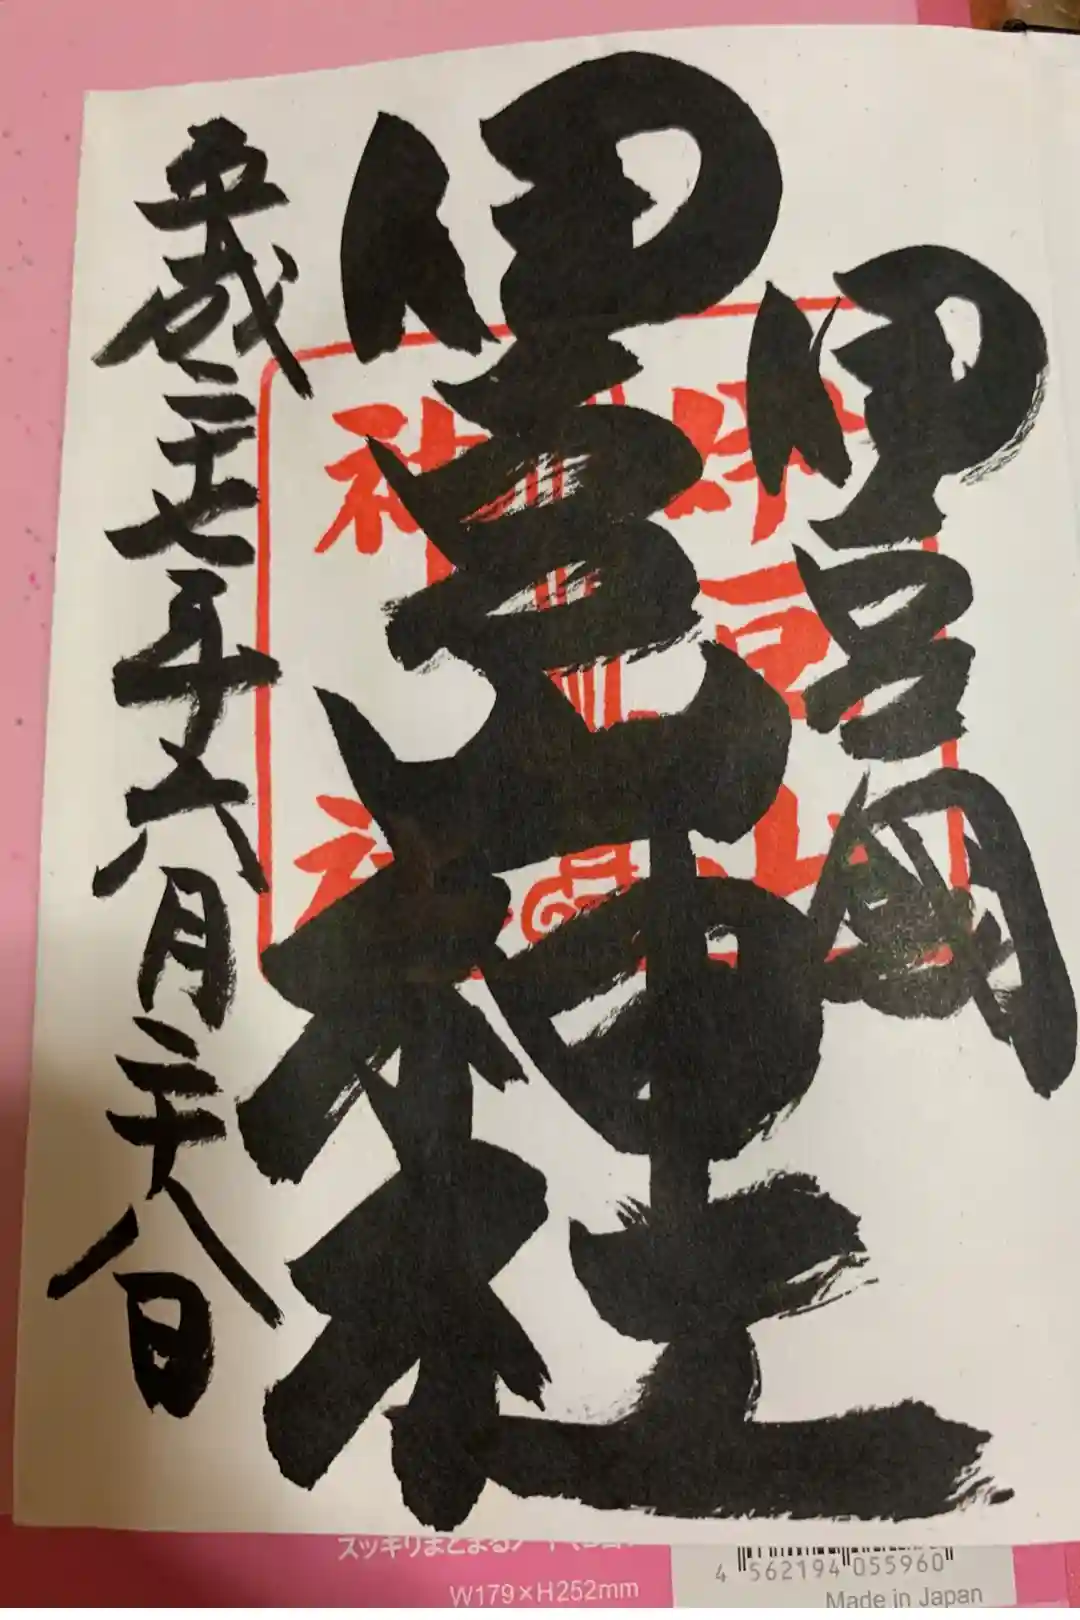 伊豆國
伊豆山神社
平成二十七年六月二十八日
伊豆山
神社
スッキリまとまるノート
4 562194 055960
W179×H252mm
Made in Japan